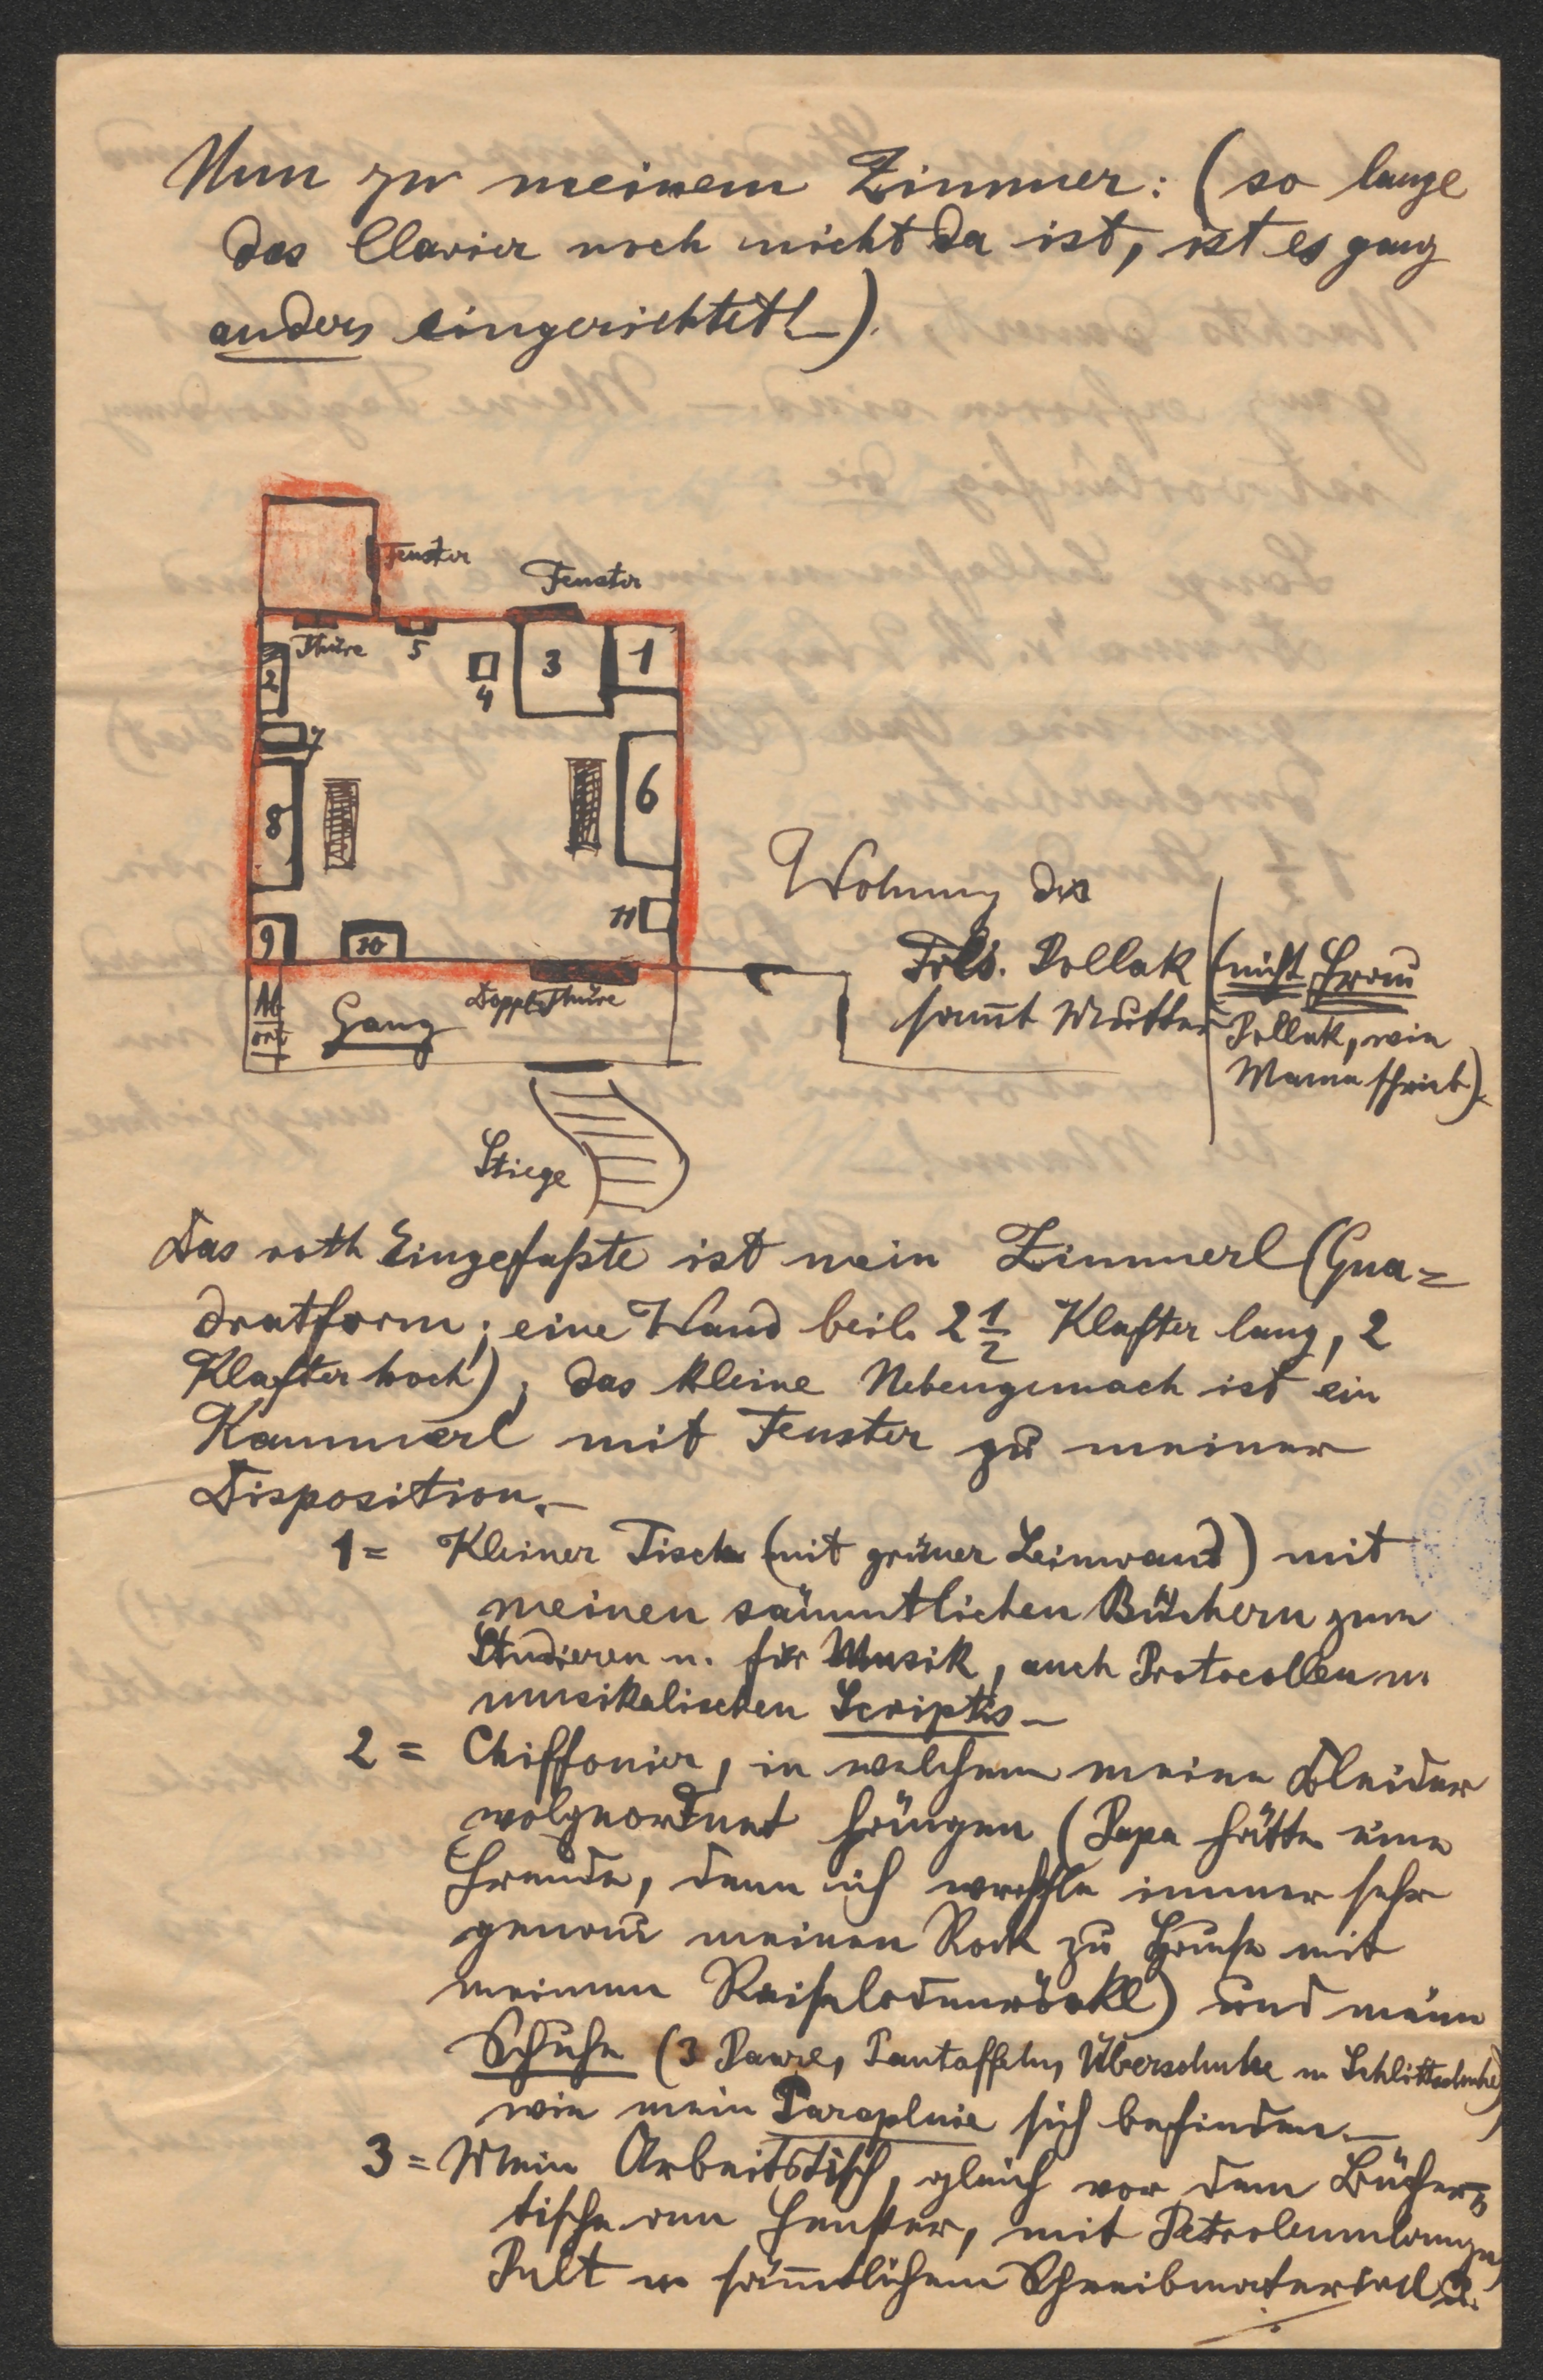 Nun zu meinem Zimmer: (so lange
das Clavier noch nicht da ist, ist es ganz
anders eingerichtet! –).
Fenster
Fenster
Thüre
5
4
3
1
2
7
8
6
9
10
11
Abort
Gang
Doppelthüre
Stiege
Wohnung des
Frls. Pollak
sam̅t Mutter
(nicht Frau
Pollak, wie
Mama schrieb).
Das roth Eingefaßte ist mein Zimmerl (Qua=
dratform; eine Wand beil. 2 1/2 Klafter lang, 2
Klafter hoch); das kleine Nebengemach ist ein
Kammerl mit Fenster zu meiner
Disposition. –
1 = Kleiner Tisch (mit grüner Leinwand) mit
meinen sämmtlichen Büchern zum
Studieren u. für Musik, auch Protocollen u.
musikalischen Scriptis –
2 = Chiffonier, in welchem meine Kleider
wolgeordnet hängen (Papa hätte eine
Freude, denn ich wechsle immer sehr
genau meinen Rock zu Hause mit
meinem Reiselodenröckl) und meine
Schuhe (3 Paare, Pantoffeln, Überschuhe u. Schlittschuhe)
wie mein Paraplnie sich befinden. –
3 = Mein Arbeitstisch, gleich vor dem Bücher=
tische am Fenster, mit Petroleumlampe,
Pult u. säm̅tlichem Schreibmaterial